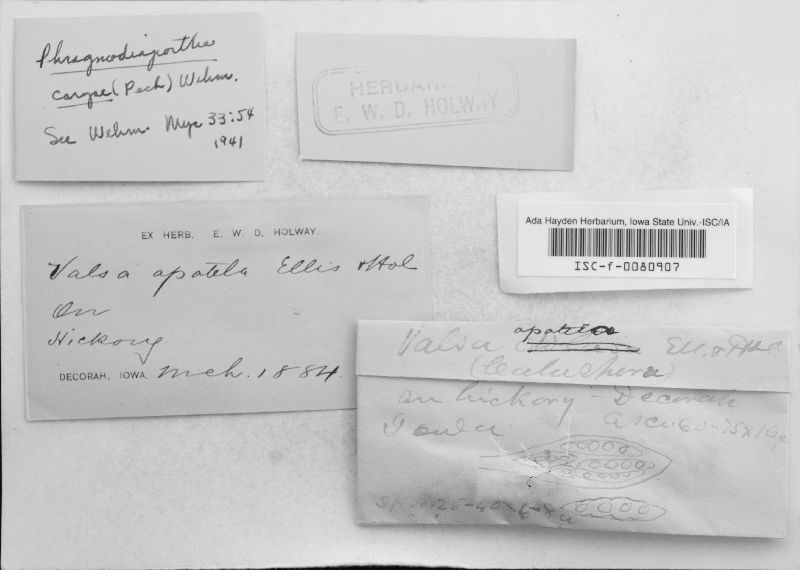 Phragmodiaporthe
caryae (Peck) Wehm.
See Wehm. Myc 33:54
1941
HERBARIUM
E. W. D. HOLWAY
Ada Hayden Herbarium, Iowa State Univ.-ISC/IA
ISC-f-0080907
EX HERB. E. W. D. HOLWAY.
Valsa apatela Ellis & Hol
On
Hickory
DECORAH, IOWA, Mch. 1884.
apatela
Valsa Ell. & Hol.
(Calosphera)
on hickory - Decorah
Iowa asci 60-75 x 16
25-40 x 6-8 u